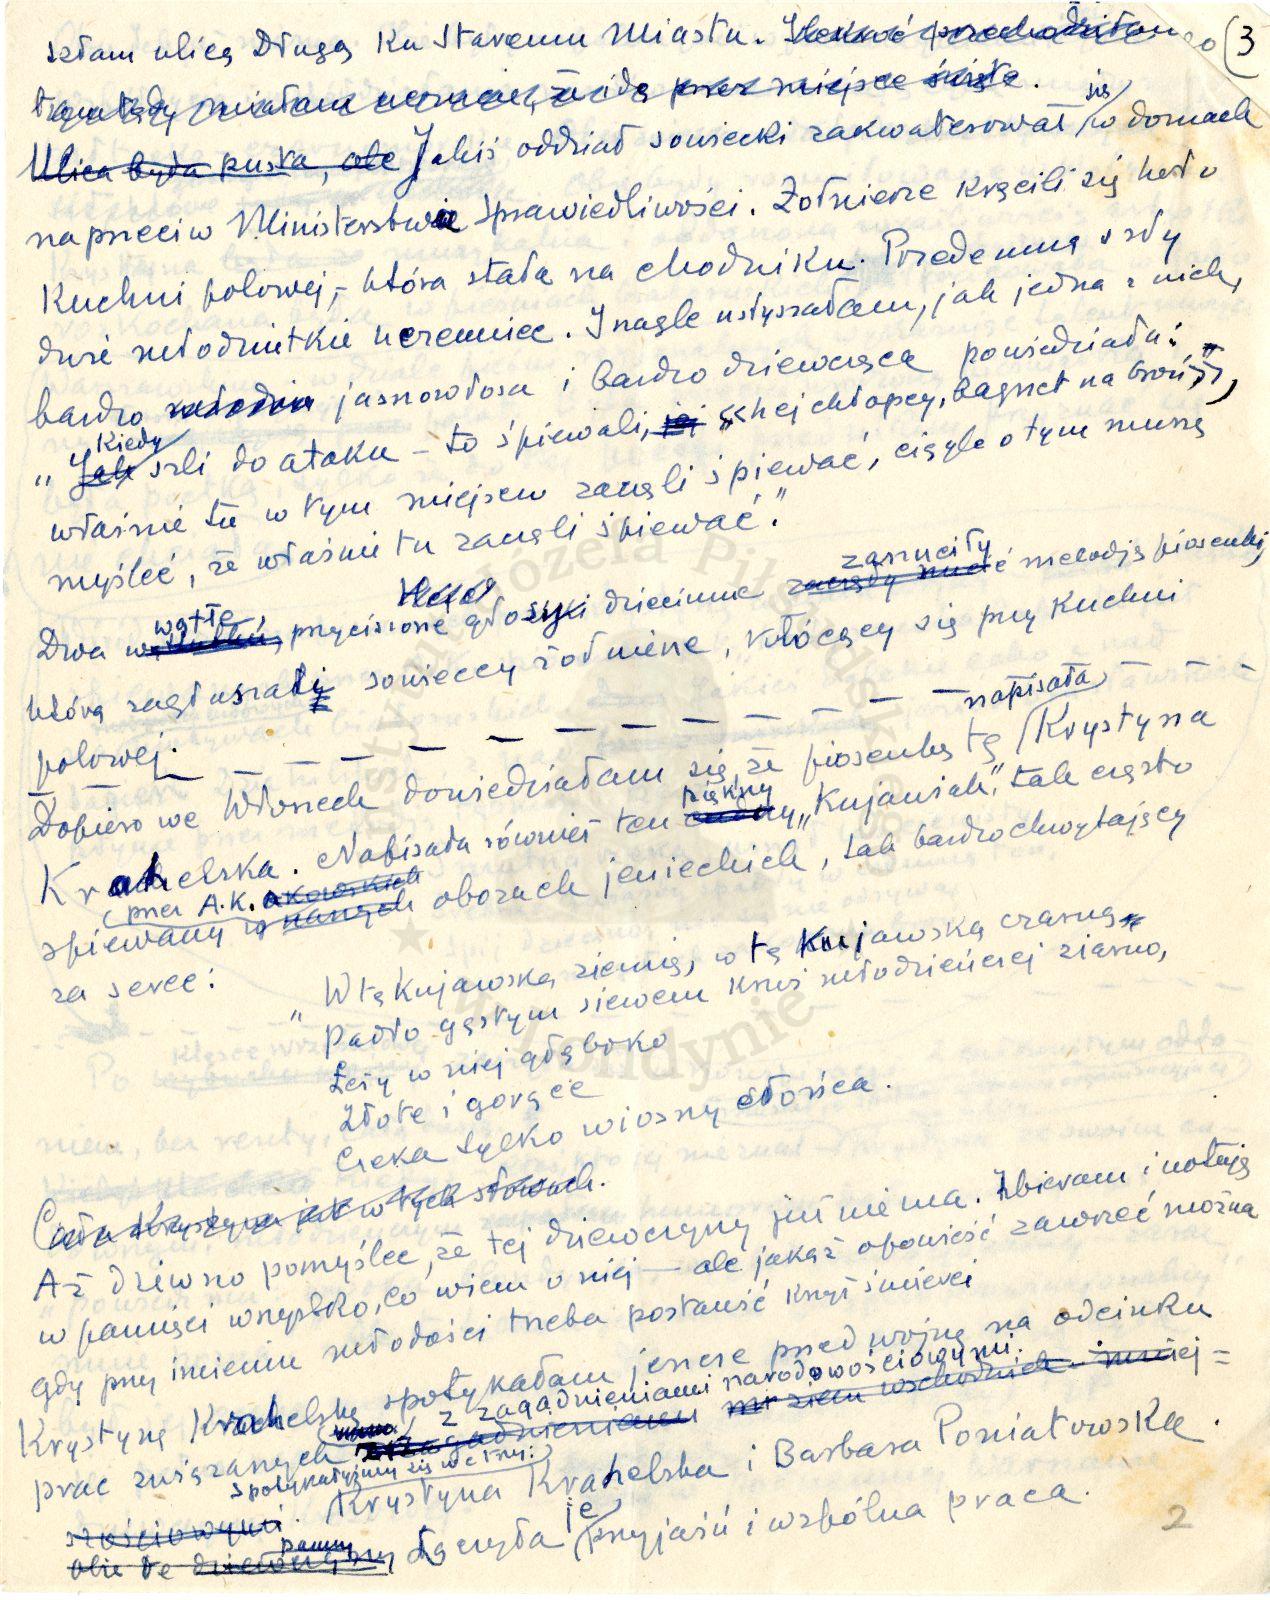 3
szłam ulicą Długą ku Staremu Miastu. Ilekroć przechodziłam
tamtędy miałam uczucie, że idę przez miejsce święte.
Ulica była pusta, ale Jakiś oddział sowiecki zakwaterował się w domach
naprzeciw Ministerstwa Sprawiedliwości. Żołnierze kręcili się koło
kuchni polowej, - która stała na chodniku. Przedemną szły
dwie młodziutkie uczennice. I nagle usłyszałam, jak jedna z nich,
bardzo jasnowłosa i bardzo dziewczęca powiedziała:
„Jak Kiedy szli do ataku - to śpiewali, «hej chłopcy, bagnet na broń»,
właśnie tu w tym miejscu zaczęli śpiewać, ciągle o tym muszę
myśleć, że właśnie tu zaczęli śpiewać."
Dwa wątłe, przyciszone głosy dziecinne zaczęły nucić zanuciły melodję piosenki,
którą zagłuszali sowieccy żołnierze, kłócący się przy kuchni
polowej. _ _ _ _ _ _ _ _ _ _
Dopiero we Włoszech dowiedziałam się, że piosenkę tę napisała Krystyna
Krahelska. Napisała również ten piękny „Kujawiak", tak często
śpiewany (przez A.K. akowskich w naszych obozach jenieckich, tak bardzo chwytający
za serce:
„W tę Kujawską ziemię, w tę Kujawską czarną
Padło gęstym siewem krwi młodzieńczej ziarno,
Leży w niej głęboko
Złote i gorące
Czeka tylko wiosny słońca.
Cała Krystyna jest w tych słowach.
Aż dziwno pomyśleć, że tej dziewczyny już niema. Zbieram i notuję
w pamięci wszystko, co wiem o niej - ale jakąż opowieść zawrzeć można
gdy przy imieniu młodości trzeba postawić krzyż śmierci
Krystynę Krahelską spotykałam jeszcze przed wojną na odcinku
prac związanych z zagadnieniami narodowościowymi.
zagadnieniami ziem wschodnich
spotykałyśmy się we trzy:
Krystyna Krahelska i Barbara Poniatowska.
Obie te dziewczyny panny łączyła je przyjaźń i wspólna praca.
2
Instytut Józefa Piłsudskiego w Londynie